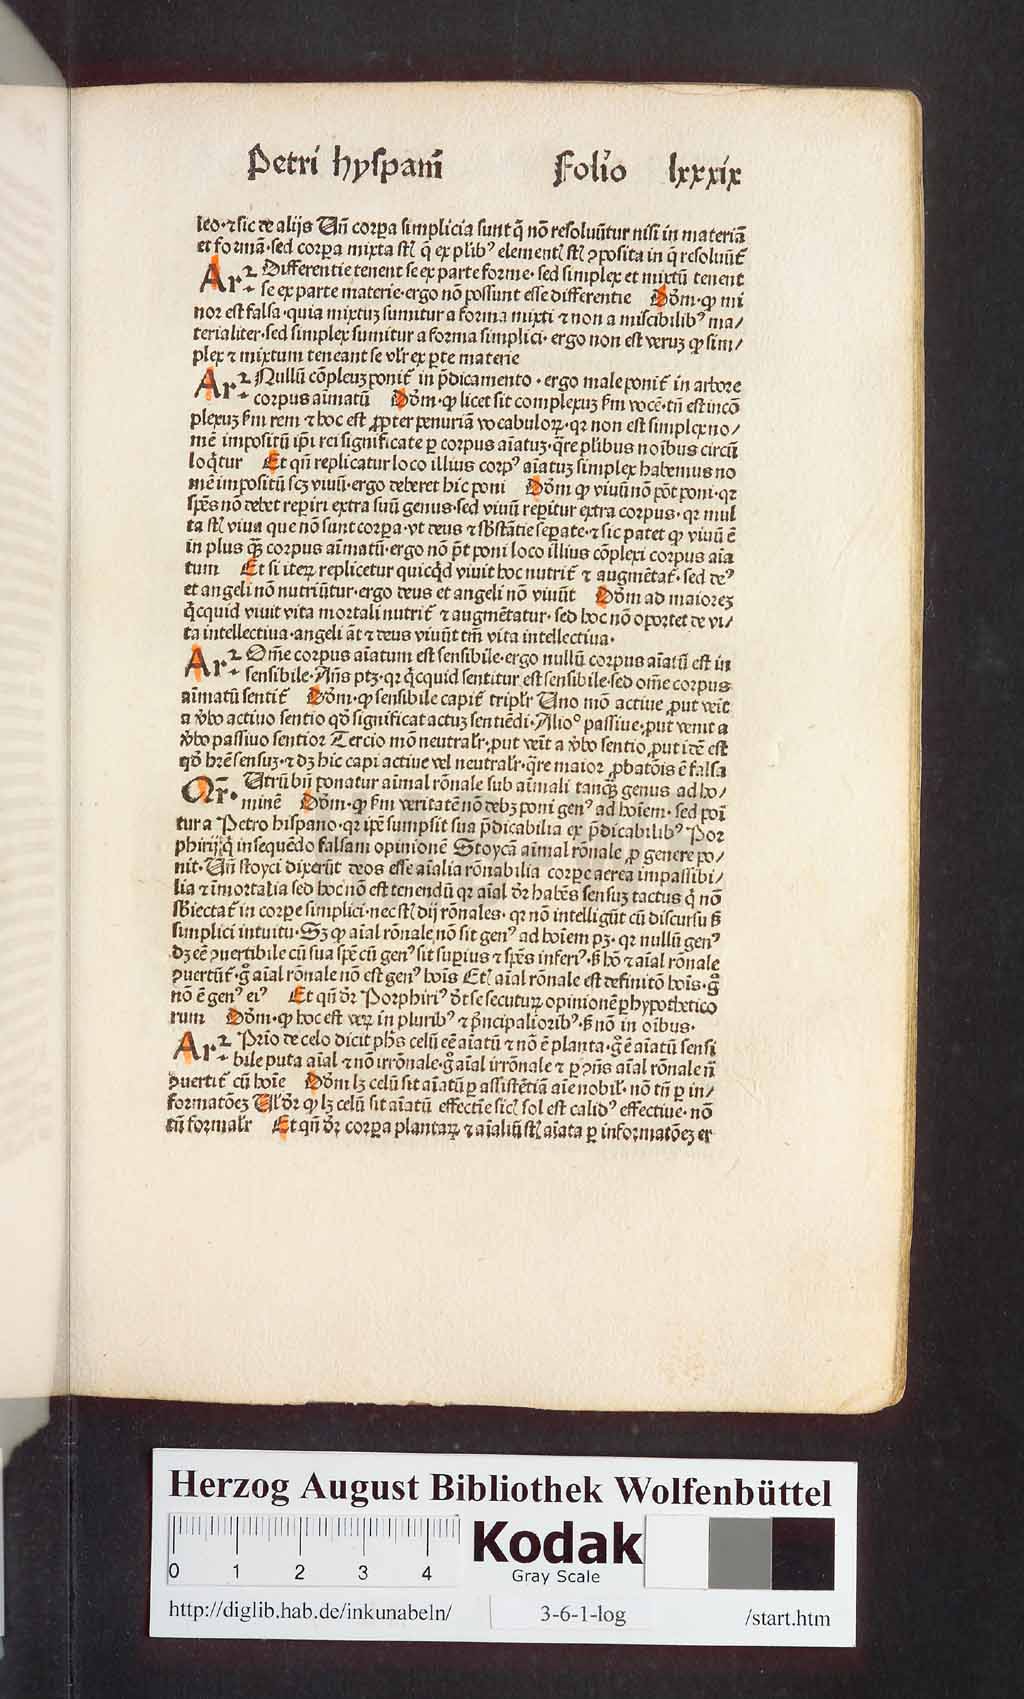 Petri hyspani Folio lxxxix
leo·⁊ sic de alijs Uñ corꝑa simplicia sunt q̃ nõ resoluũtur nisi in materiã
et formã·sed corꝑa mixta st̃ q̃ ex plib⁹ element̃ st̃ ꝯposita in q̃ resoluũt̃
Ar²· Differentie tenent se ex parte forme·sed simplex et mixtũ tenent
se ex parte materie·ergo nõ possunt esse differentie Dõm·ꝙ mi
nor est falsa·quia mixtuꝫ sumitur a forma mixti ⁊ non a miscibilib⁹ ma/
terialiter·sed simplex sumitur a forma simplici·ergo non est veruꝫ ꝙ sim/
plex ⁊ mixtum teneant se vl̃r ex ꝑte materie
Ar²· Nullũ cõplexuꝫ ponit̃ in p̃dicamento·ergo male ponit̃ in arbore
corpus aĩmatũ Dõm·ꝙ licet sit complexuꝫ ẜm vocẽ·tñ est incõ
plexuꝫ ẜm rem ⁊ hoc est ꝓpter penuriam vocabuloꝝ·qꝛ non est simplex no/
mẽ impositũ ip̃i rei significate ꝑ corpus aĩatuꝫ·q̃re plibus noĩbus circũ
loq̃tur Et qñ replicatur loco illius corp⁹ aĩatuꝫ simplex habemus no
mẽ impositũ scꝫ viuũ·ergo deberet hic poni Dõm ꝙ viuũ nõ põt poni·qꝛ
sp̃es nõ debet reꝑiri extra suũ genus·sed viuũ reꝑitur extra corpus·qꝛ mul
ta st̃ viua que nõ sunt corꝑa·vt deus ⁊ sb̃stãtie seꝑate·⁊ sic patet ꝙ viuũ ẽ
in plus q̃ꝫ corpus aĩmatũ·ergo nõ p̃t poni loco illius cõplexi corpus aĩa
tum Et si iteꝝ replicetur quicq̃d viuit hoc nutrit̃ ⁊ augmẽtat̃·sed de⁹
et angeli nõ nutriũtur·ergo deus et angeli nõ viuũt Dõm ad maiorẽ
q̃cquid viuit vita mortali nutrit̃ ⁊ augmẽtatur·sed hoc nõ oportet de vi/
ta intellectiua·angeli ãt ⁊ deus viuũt tm̃ vita intellectiua·
Ar²· Om̃e corpus aĩatum est sensibile·ergo nullũ corpus aĩatũ est in
sensibile·Añs ptꝫ·qꝛ q̃cquid sentitur est sensibile·sed om̃e corpus
aĩmatũ sentit̃ Dõm·ꝙ sensibile capit̃ triplr̃ Uno mõ actiue ꝓut veĩt
a v̾bo actiuo sentio qd̾ significat actuꝫ sentiẽdi·Alio° passiue·ꝓut venit a
v̾bo passiuo sentior Tercio mõ neutralr̃·ꝓut veĩt a v̾bo sentio ꝓut idẽ est
qd̾ hr̃e sensuꝫ·⁊ dꝫ hic capi actiue vel neutralr̃·q̃re maior ꝓbatõis ẽ falsa
Qr̃· Utrũ bñ ponatur aĩmal rõnale sub aĩmali tanq̃ꝫ genus ad ho/
minẽ Dõm·ꝙ ẜm veritatẽ nõ debꝫ poni gen⁹ ad hoĩem·sed poĩ
tur a Petro hispano·qꝛ ip̃e sumpsit sua p̃dicabilia ex p̃dicabilib⁹ Por
phirij q̃ insequẽdo falsam opinionẽ Stoycã aĩmal rõnale ꝓ genere po/
nit·Uñ stoyci dixerũt deos esse aĩalia rõnabilia corꝑe aerea impassibi/
lia ⁊ ĩmortalia sed hoc nõ est tenendũ qꝛ aĩal dr̃ habẽs sensuꝫ tactus q̃ nõ
sb̃iectat̃ in corꝑe simplici·nec st̃ dij rõnales·qꝛ nõ intelligũt cũ discursu ẜ
simplici intuitu·Sꝫ ꝙ aĩal rõnale nõ sit gen⁹ ad hoĩem pꝫ·qꝛ nullũ gen⁹
dꝫ eẽ ꝯuertibile cũ sua sp̃e cũ gen⁹ sit suꝑius ⁊ sp̃es inferi⁹·ẜ hõ ⁊ aĩal rõnale
ꝯuertũt̃·g̃ aĩal rõnale nõ est gen⁹ hoĩs Et̃ aĩal rõnale est definitõ hoĩs·g̃
nõ ẽ gen⁹ ei⁹ Et qñ dr̃ Porphiri⁹ dt̃ se secuturꝝ opinionẽ ꝑhypothetico
rum Dõm·ꝙ hoc est veꝝ in plurib⁹ ⁊ p̃ncipaliorib⁹·ẜ nõ in oĩbus·
Ar²· Prĩo de celo dicit ph̃s celũ eẽ aĩatũ ⁊ nõ ẽ planta·g̃ ẽ aĩatũ sensi
bile puta aĩal ⁊ nõ irrõnale·g̃ aĩal irrõnale ⁊ ꝑ ꝯñs aĩal rõnale ñ
ꝯuertit̃ cũ hoĩe Dõm lꝫ celũ sit aĩatũ ꝑ assistẽtiã aĩe nobil̃·nõ tñ ꝑ in/
formatõeꝫ Ul̃ dr̃ ꝙ lꝫ celũ sit aĩatũ effectiue sic̃ sol est calid⁹ effectiue·nõ
tñ formalr̃ Et qñ dr̃ corꝑa plantaꝝ ⁊ aĩaliũ st̃ aĩata ꝑ informatõeꝫ er
Herzog August Bibliothek Wolfenbüttel
0 1 2 3 4
Kodak
Gray Scale
http://diglib.hab.de/inkunabeln/ 3-6-1-log /start.htm